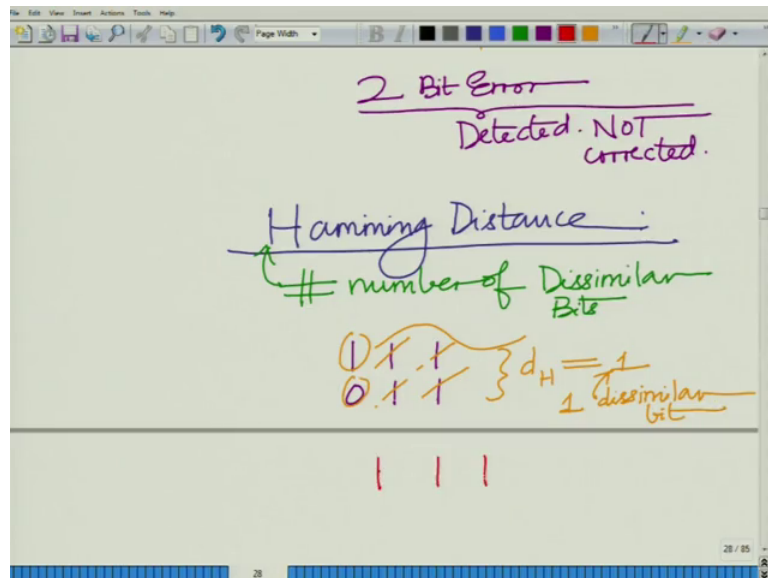 File Edit View Insert Actions Tools Help
Page Width B I
2 Bit Error
Detected. NOT
corrected.
Hamming Distance :
# number of Dissimilar
Bits
1 1 1
0 1 1 } d_H = 1
1 dissimilar
bit
1 1 1
28 / 85
28